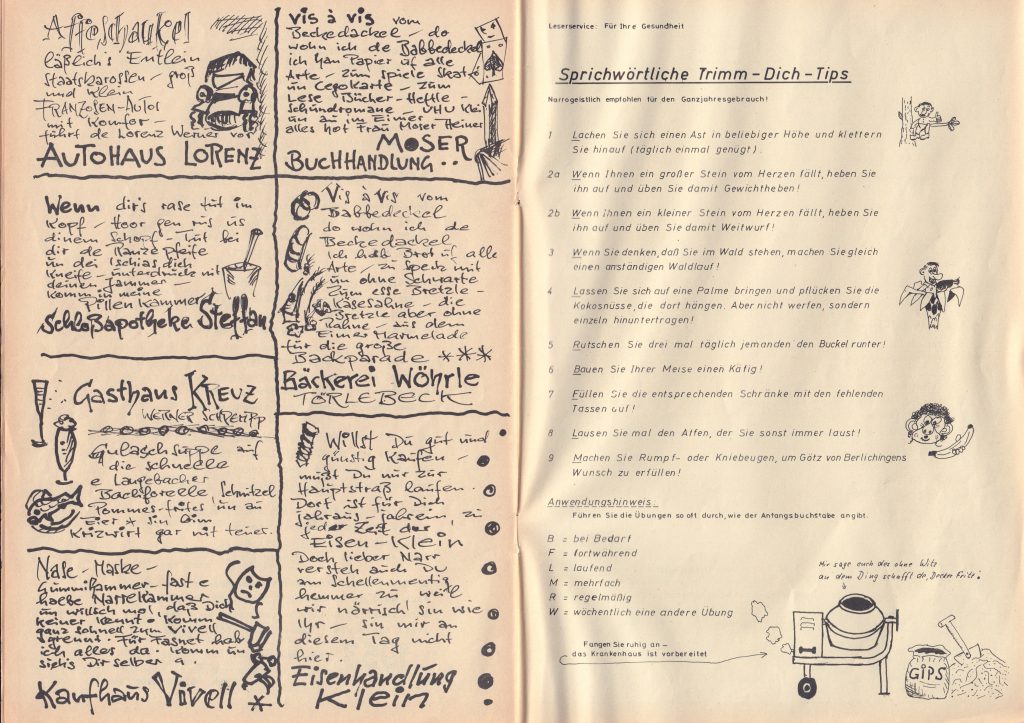 Affeschaukel
läßlich's Entlein
Staatsbarossen - groß
und klein
FRANZOSEN-AUTOS
mit Komfor -
führt de Lorenz Werner vor
AUTOHAUS LORENZ
Wenn dir's rase tut im
Kopf - Hoor gen rus us
dinem Schopf - Tut bei
dir de Ranze pfeife
un dei Ischias dich
Kneife - unterdruck nit
deinen Jammer -
Komm in meine
Pillenkammer
Schloßapotheke Steffan
Gasthaus KREUZ
WERNER SCHREMPP
Gulaschsuppe auf
die schnelle
e Laugebacher
Bachforelle Schnitzel
Pommes-frites un au
Eier * sin bim
Krizwirt gar nit teuer.
Nase - Maske -
Gummihammer - fast e
halbe Narrekammer
un willsch mol, daß Dich
keiner kennt - Komm
ganz schnell zum Vivell
grennt. Für Fasnet hab
ich alles da. Komm un
sieh's Dir selber a.
Kaufhaus Vivell *
vis à vis vom
Beckedackel - do
wohn ich de Babbedeckel
ich han Papier uf alle
Arte - zum spiele Skat-
un Cegokarte - zum
Lese Bücher - Heftle -
Schundromane - UHU Klei
un au im Eimer -
alles hot Frau Moser Heiner
MOSER
BUCHHANDLUNG ..
Vis à Vis vom
Babbedeckel
do wohn ich de
Beckedackel
Ich hab Brot uf alle
Arte - zu Speck mit
un ohne Schwarte
Zum esse Bretzle -
Käsesahne - die
Bretzle aber ohne
Rahne - aus dem
Eimer Marmelade
für die große
Backparade ***
Bäckerei Wöhrle
TÖRLEBECK
Willst Du gut und
günstig Kaufen -
mußt Du nur zur
Hauptstraß laufen.
Dort ist für Dich
jahraus - jahrein, zu
jeder Zeit der
Eisen - Klein
Doch lieber Narr
versteh auch Du
am Schellementig
hemmer zu weil
wir närrisch sin wie
Ihr - sin mir an
diesem Tag nicht
hier.
Eisenhandlung
Klein
Leserservice: Für Ihre Gesundheit
Sprichwörtliche Trimm - Dich - Tips
Narrogeistlich empfohlen für den Ganzjahresgebrauch!
1 Lachen Sie sich einen Ast in beliebiger Höhe und klettern
Sie hinauf (täglich einmal genügt).
2a Wenn Ihnen ein großer Stein vom Herzen fällt, heben Sie
ihn auf und üben Sie damit Gewichtheben!
2b Wenn Ihnen ein kleiner Stein vom Herzen fällt, heben Sie
ihn auf und üben Sie damit Weitwurf!
3 Wenn Sie denken, daß Sie im Wald stehen, machen Sie gleich
einen anständigen Waldlauf!
4 Lassen Sie sich auf eine Palme bringen und pflücken Sie die
Kokosnüsse, die dort hängen. Aber nicht werfen, sondern
einzeln hinuntertragen!
5 Rutschen Sie drei mal täglich jemanden den Buckel runter!
6 Bauen Sie Ihrer Meise einen Käfig!
7 Füllen Sie die entsprechenden Schränke mit den fehlenden
Tassen auf!
8 Lausen Sie mal den Affen, der Sie sonst immer laust!
9 Machen Sie Rumpf- oder Kniebeugen, um Götz von Berlichingens
Wunsch zu erfüllen!
Anwendungshinweis:
Führen Sie die Übungen so oft durch, wie der Anfangsbuchstabe angibt.
B = bei Bedarf
F = fortwährend
L = laufend
M = mehrfach
R = regelmäßig
W = wöchentlich eine andere Übung
Mir sage euch des ohne Witz
an dem Ding schafft de Fritz!
Fangen Sie ruhig an -
das Krankenhaus ist vorbereitet
GIPS